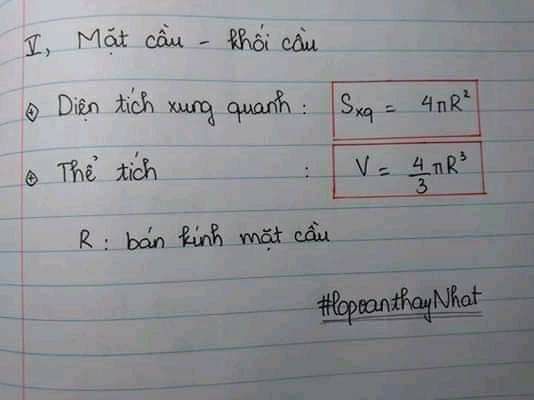 V, Mặt cầu - khối cầu
Diện tích xung quanh : Sxq = 4πR²
Thể tích : V = 4/3 πR³
R : bán kính mặt cầu
#lopoanthayNhat